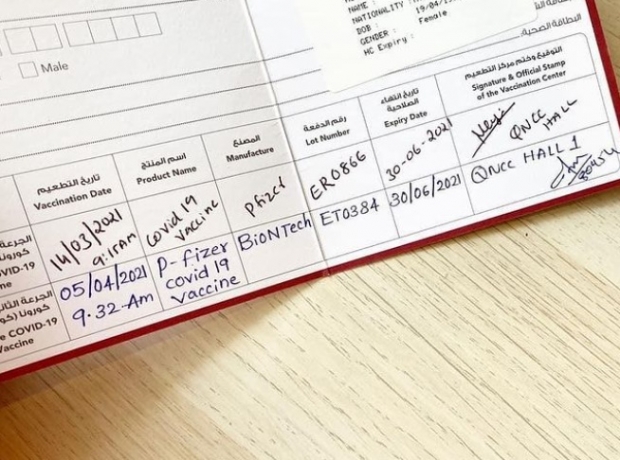 NAME :
NATIONALITY :
DOB : 19/04/
GENDER : Female
HC Expiry :
البطاقة الصحية
Male
تاريخ التطعيم
Vaccination Date
اسم المنتج
Product Name
المصنع
Manufacture
رقم الدفعة
Lot Number
تاريخ انتهاء الصلاحية
Expiry Date
التوقيع وختم مركز التطعيم
Signature & Official Stamp
of the Vaccination Center
الجرعة
VID-19
14/03/2021
9:11AM
Covid 19
vaccine
Pfizer
ER0866
30-06-2021
QNCC
HALL
الجرعة الثان
e COVID-19
Vaccine
05/04/2021
9.32-Am
P-fizer
covid 19
vaccine
BioNTech
ET0384
30/06/2021
QNCC HALL 1